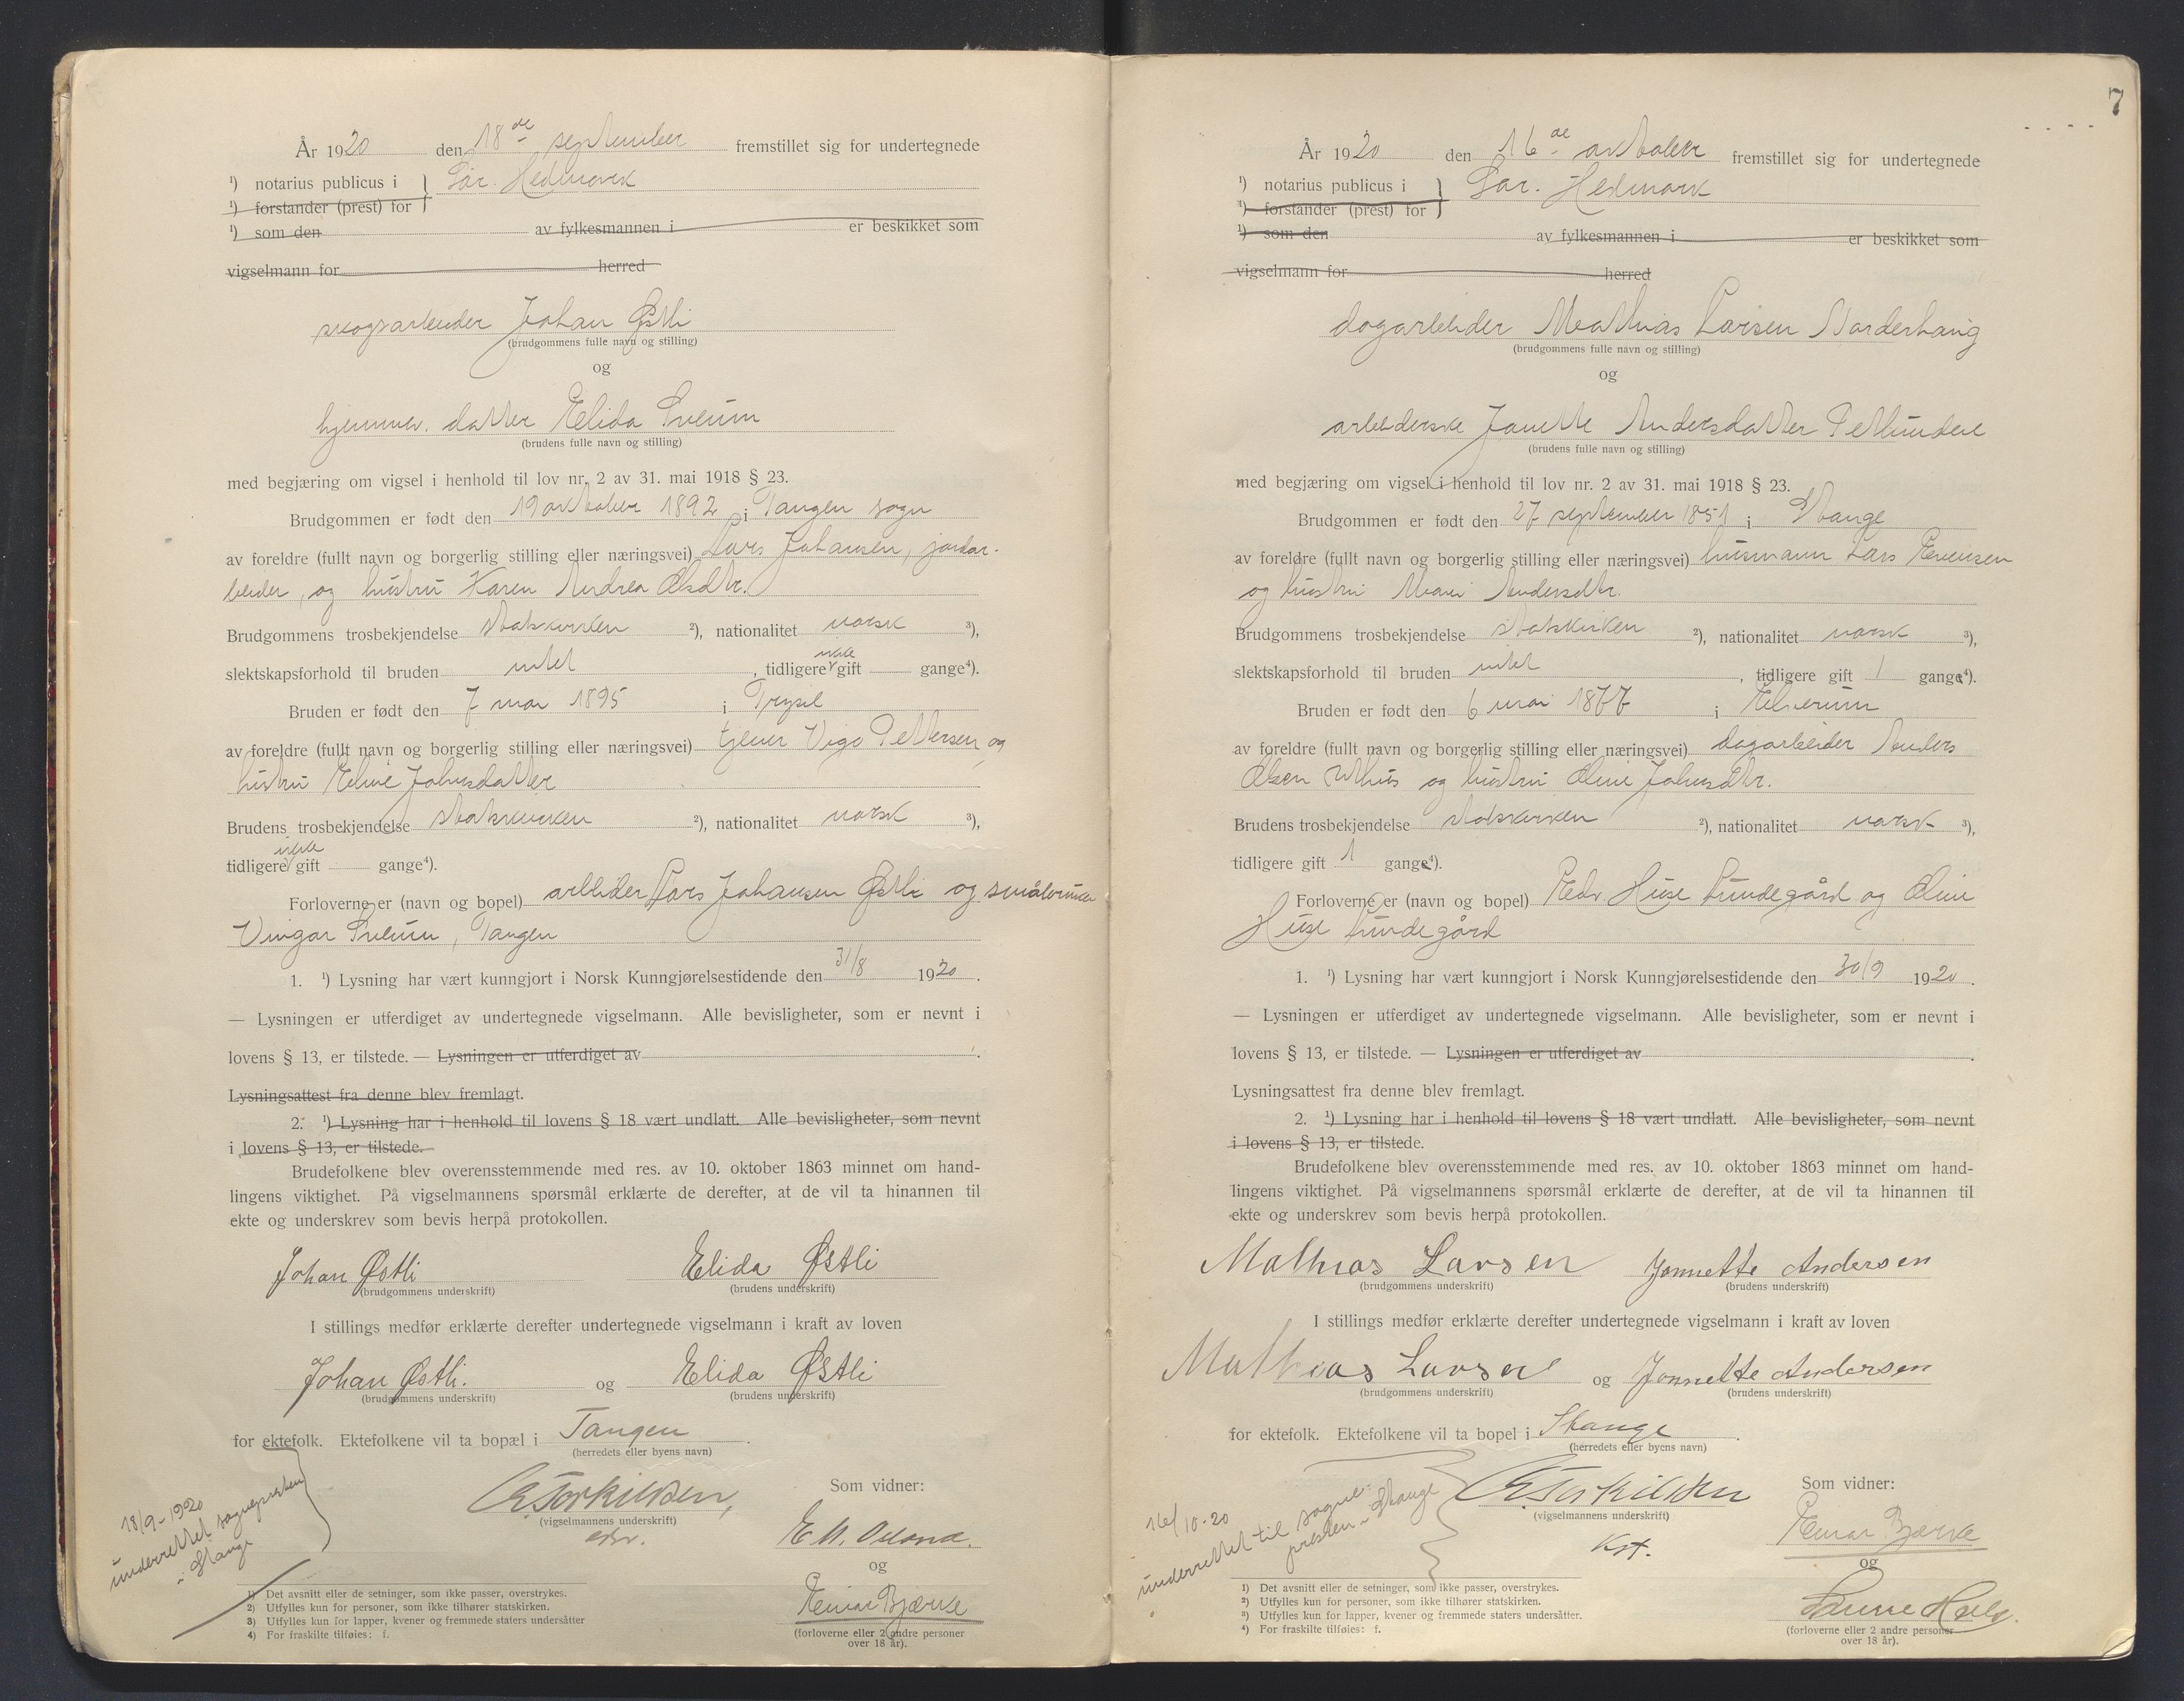 År 1920 den 18de september fremstillet sig for undertegnede
¹) notarius publicus i } Sør. Hedmark
¹) forstander (prest) for
¹) som den av fylkesmannen i er beskikket som
vigselmann for herred
skogsarbeider Johan Østli
(brudgommens fulle navn og stilling)
og
hjemmev. datter Elida Sveum
(brudens fulle navn og stilling)
med begjæring om vigsel i henhold til lov nr. 2 av 31. mai 1918 § 23.
Brudgommen er født den 19 oktober 1892 i Tangen sogn
av foreldre (fullt navn og borgerlig stilling eller næringsvei) Lars Johansen, jordar-
beider, og hustru Karen Andrea Olsdtr.
Brudgommens trosbekjendelse statskirken ²), nationalitet norsk ³),
slektskapsforhold til bruden intet, tidligere ikke gift gange⁴).
Bruden er født den 7 mai 1895 i Trysil
av foreldre (fullt navn og borgerlig stilling eller næringsvei) tjener Vigo Pettersen og
hustru Eline Johnsdatter
Brudens trosbekjendelse statskirken ²), nationalitet norsk ³),
tidligere ikke gift gange⁴).
Forloverne er (navn og bopel) arbeider Lars Johansen Østli og småbruker
Vingar Sveum, Tangen
1. ¹) Lysning har vært kunngjort i Norsk Kunngjørelsestidende den 31/8 1920.
— Lysningen er utferdiget av undertegnede vigselmann. Alle bevisligheter, som er nevnt i
lovens § 13, er tilstede. — Lysningen er utferdiget av .
Lysningsattest fra denne blev fremlagt.
2. ¹) Lysning har i henhold til lovens § 18 vært undlatt. Alle bevisligheter, som nevnt
i lovens § 13, er tilstede.
Brudefolkene blev overensstemmende med res. av 10. oktober 1863 minnet om hand-
lingens viktighet. På vigselmannens spørsmål erklærte de derefter, at de vil ta hinannen til
ekte og underskrev som bevis herpå protokollen.
Johan Østli Elida Østli
(brudgommens underskrift) (brudens underskrift)
I stillings medfør erklærte derefter undertegnede vigselmann i kraft av loven
Johan Østli. og Elida Østli
(brudgommens underskrift) (brudens underskrift)
for ektefolk. Ektefolkene vil ta bopæl i Tangen.
(herredets eller byens navn)
18/9-1920
underrettet sognepresten
i Stange
Torkildsen, Som vidner:
(vigselmannens underskrift)
og
Einar Bjærke
(forloverne eller 2 andre personer
over 18 år).
1) Det avsnitt eller de setninger, som ikke passer, overstrykes.
2) Utfylles kun for personer, som ikke tilhører statskirken.
3) Utfylles kun for lapper, kvener og fremmede staters undersåtter
4) For fraskilte tilføies: f.
7
År 1920 den 16de oktober fremstillet sig for undertegnede
¹) notarius publicus i } Sør. Hedmark
¹) forstander (prest) for
¹) som den av fylkesmannen i er beskikket som
vigselmann for herred
dagarbeider Mathias Larsen Norderhaug
(brudgommens fulle navn og stilling)
og
arbeiderske Janette Andersdatter
(brudens fulle navn og stilling)
med begjæring om vigsel i henhold til lov nr. 2 av 31. mai 1918 § 23.
Brudgommen er født den 27 september 1851 i Stange
av foreldre (fullt navn og borgerlig stilling eller næringsvei) husmann Lars Evensen
og hustru Mari Andersdtr.
Brudgommens trosbekjendelse statskirken ²), nationalitet norsk ³),
slektskapsforhold til bruden intet, tidligere gift 1 gange⁴).
Bruden er født den 6 mai 1877 i Elverum
av foreldre (fullt navn og borgerlig stilling eller næringsvei) dagarbeider Anders
Olsen Uthus og hustru Oline Johnsdtr.
Brudens trosbekjendelse statskirken ²), nationalitet norsk ³),
tidligere gift 1 gange⁴).
Forloverne er (navn og bopel) Edv. Huse Lundegård og Oline
Huse Lundegård
1. ¹) Lysning har vært kunngjort i Norsk Kunngjørelsestidende den 30/9 1920.
— Lysningen er utferdiget av undertegnede vigselmann. Alle bevisligheter, som er nevnt i
lovens § 13, er tilstede. — Lysningen er utferdiget av .
Lysningsattest fra denne blev fremlagt.
2. ¹) Lysning har i henhold til lovens § 18 vært undlatt. Alle bevisligheter, som nevnt
i lovens § 13, er tilstede.
Brudefolkene blev overensstemmende med res. av 10. oktober 1863 minnet om hand-
lingens viktighet. På vigselmannens spørsmål erklærte de derefter, at de vil ta hinannen til
ekte og underskrev som bevis herpå protokollen.
Mathias Larsen Jannette Andersen
(brudgommens underskrift) (brudens underskrift)
I stillings medfør erklærte derefter undertegnede vigselmann i kraft av loven
Mathias Larsen og Jannette Andersen
(brudgommens underskrift) (brudens underskrift)
for ektefolk. Ektefolkene vil ta bopel i Stange.
(herredets eller byens navn)
16/10-20
underrettet til sogne-
presten i Stange
Torkildsen Som vidner:
(vigselmannens underskrift)
Kst.
Einar Bjærke
og
(forloverne eller 2 andre personer
over 18 år).
1) Det avsnitt eller de setninger, som ikke passer, overstrykes.
2) Utfylles kun for personer, som ikke tilhører statskirken.
3) Utfylles kun for lapper, kvener og fremmede staters undersåtter.
4) For fraskilte tilføies: f.